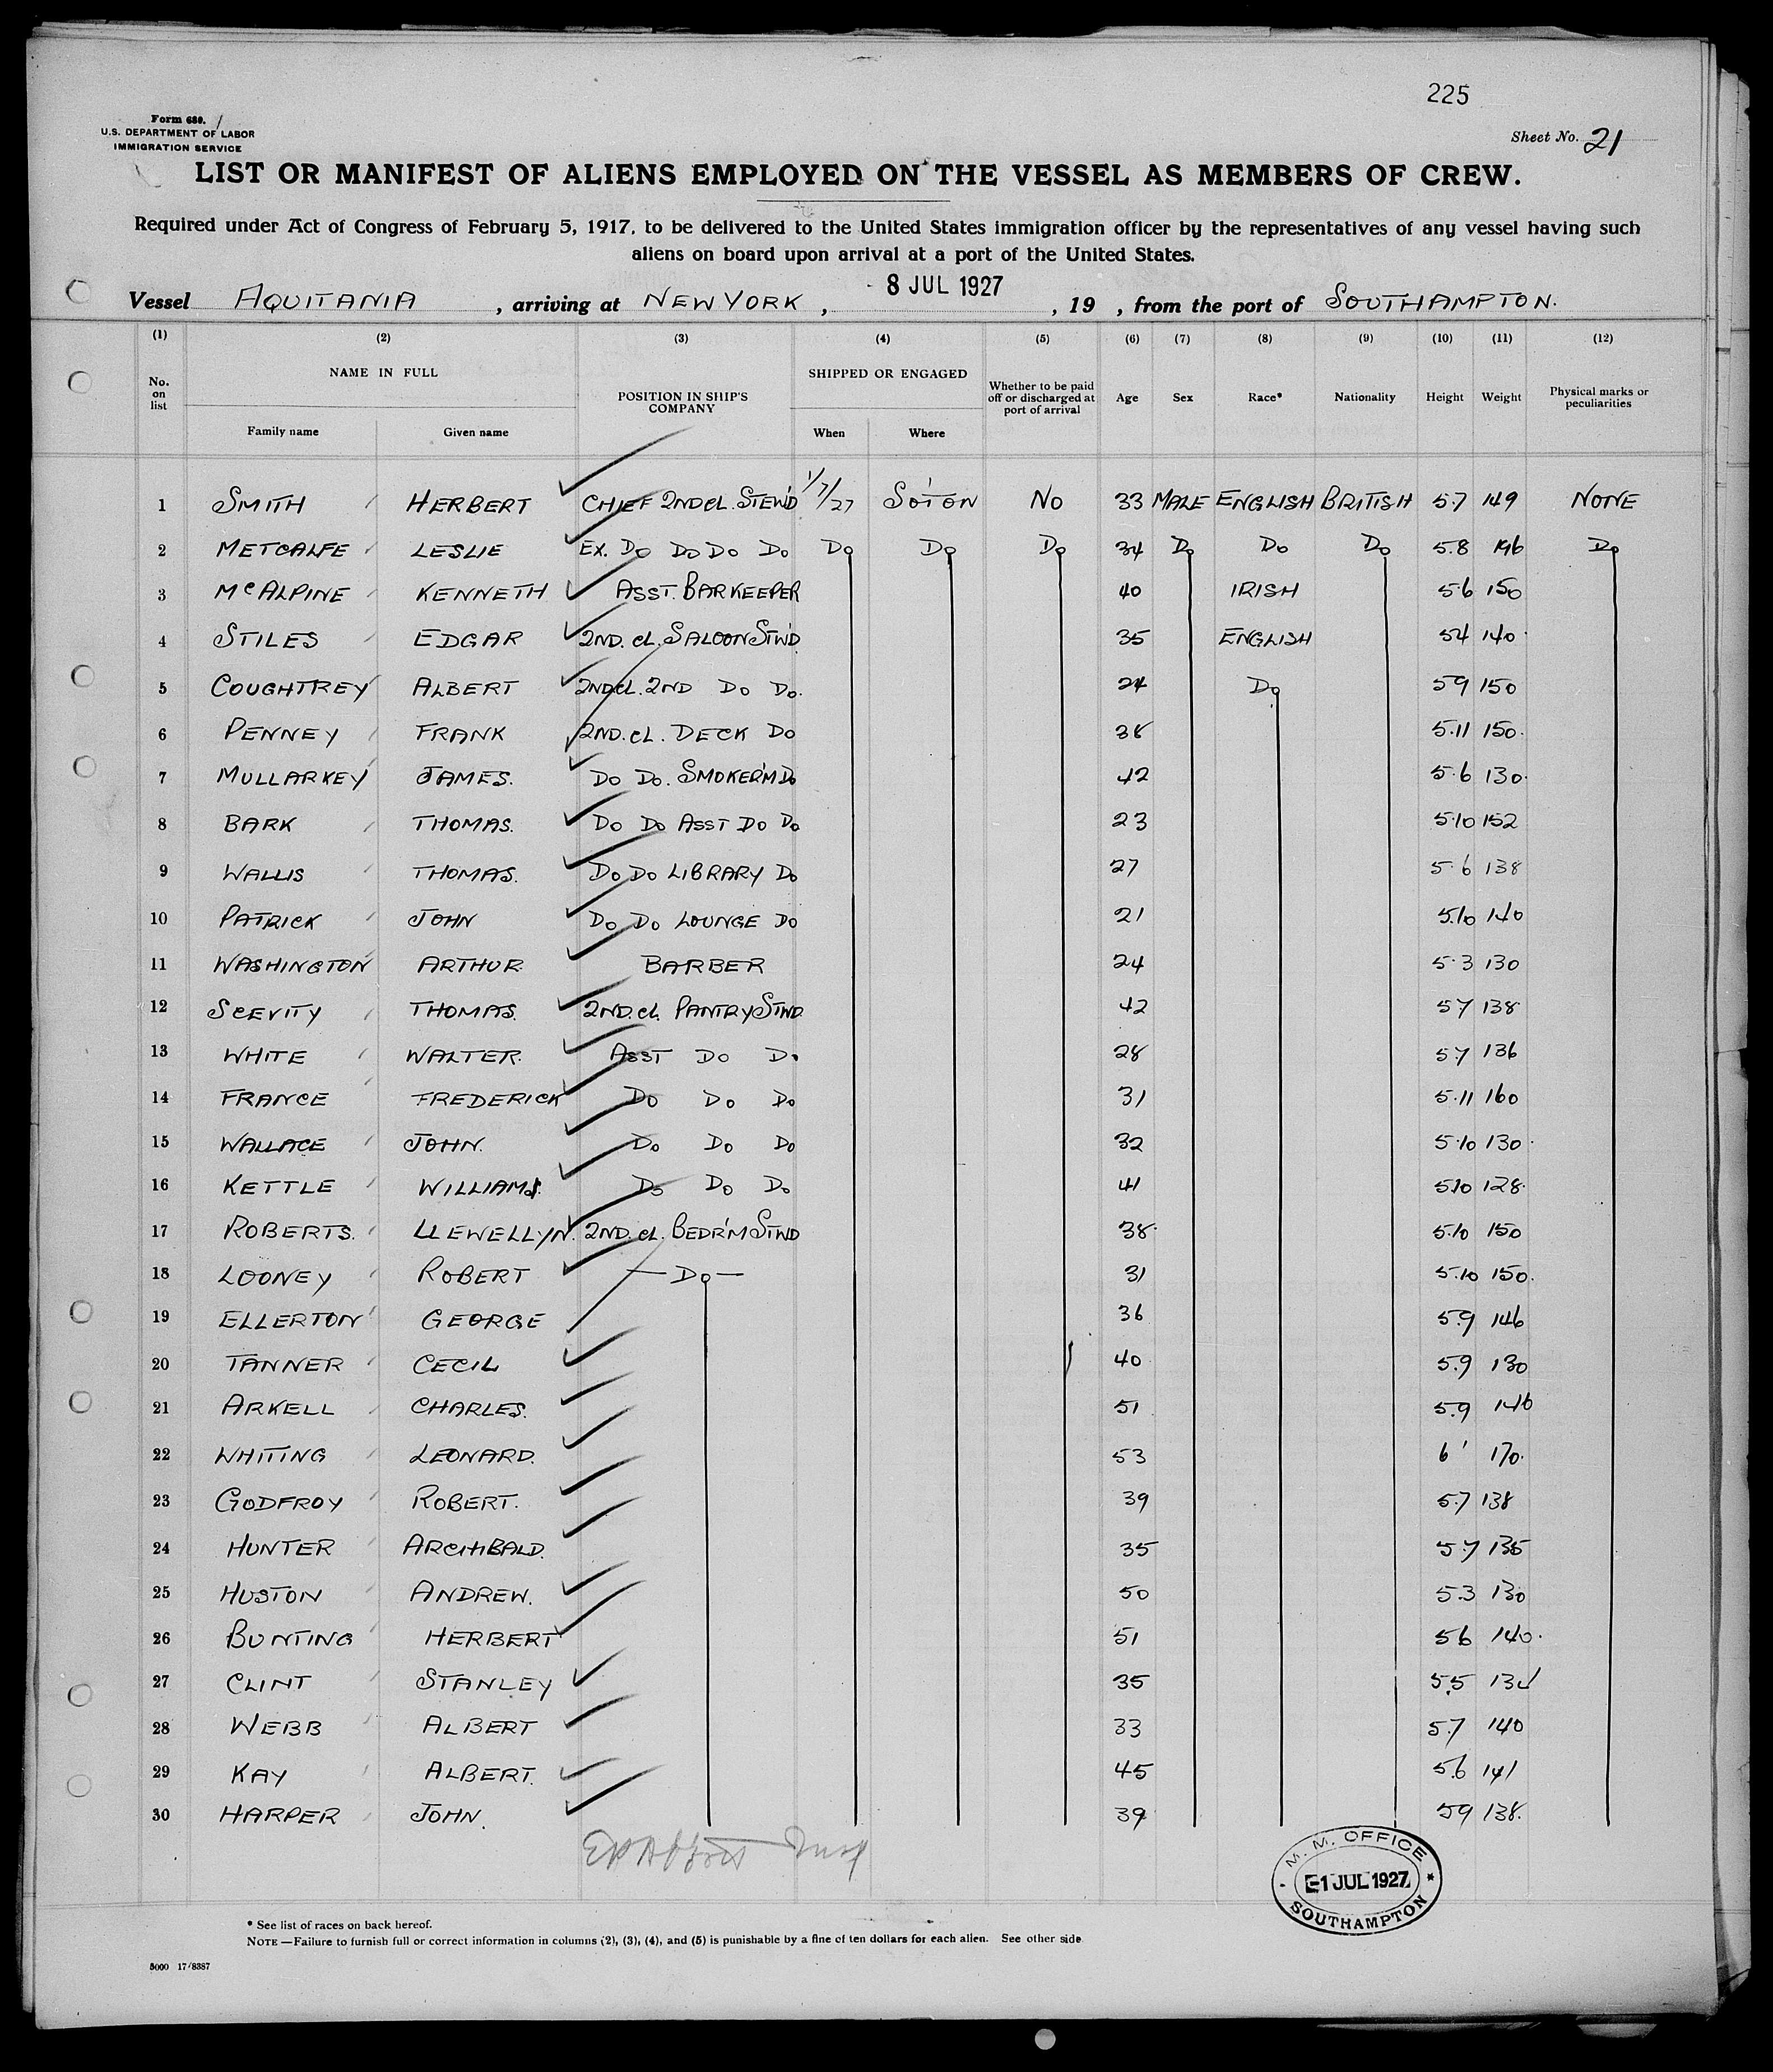 225
Form 680.
U.S. DEPARTMENT OF LABOR
IMMIGRATION SERVICE
Sheet No. 21
LIST OR MANIFEST OF ALIENS EMPLOYED ON THE VESSEL AS MEMBERS OF CREW.
Required under Act of Congress of February 5, 1917, to be delivered to the United States immigration officer by the representatives of any vessel having such
aliens on board upon arrival at a port of the United States.
Vessel AQUITANIA, arriving at NEW YORK, 8 JUL 1927, 19 , from the port of SOUTHAMPTON.
(1) (2) (3) (4) (5) (6) (7) (8) (9) (10) (11) (12)
No. on list NAME IN FULL POSITION IN SHIP'S COMPANY SHIPPED OR ENGAGED Whether to be paid off or discharged at port of arrival Age Sex Race* Nationality Height Weight Physical marks or peculiarities
Family name Given name When Where
1 SMITH HERBERT CHIEF 2ND CL. STEWD 1/7/27 SO'TON NO 33 MALE ENGLISH BRITISH 5.7 149 NONE
2 METCALFE LESLIE EX. DO DO DO DO DO DO DO 34 DO DO DO 5.8 146 DO
3 McALPINE KENNETH ASST. BARKEEPER 40 IRISH 5.6 150
4 STILES EDGAR 2ND. CL. SALOON STWD 35 ENGLISH 54 140
5 COUGHTREY ALBERT 2ND CL. 2ND DO DO. 24 DO 59 150
6 PENNEY FRANK 2ND. CL. DECK DO 38 5.11 150.
7 MULLARKEY JAMES. DO DO. SMOKER'M DO 42 5.6 130.
8 BARK THOMAS. DO DO ASST DO DO 23 5.10 152
9 WALLIS THOMAS. DO DO LIBRARY DO 27 5.6 138
10 PATRICK JOHN DO DO LOUNGE DO 21 5.10 140
11 WASHINGTON ARTHUR BARBER 24 5.3 130
12 SCEVITY THOMAS. 2ND. CL. PANTRY STWD 42 57 138
13 WHITE WALTER. ASST DO DO 28 5.7 136
14 FRANCE FREDERICK DO DO DO 31 5.11 160
15 WALLACE JOHN. DO DO DO 32 5.10 130.
16 KETTLE WILLIAM DO DO DO 41 5.10 128.
17 ROBERTS. LLEWELLYN. 2ND. CL. BEDR'M STWD 38. 5.10 150
18 LOONEY ROBERT — DO — 31 5.10 150.
19 ELLERTON GEORGE 36 5.9 146
20 TANNER CECIL 40 5.9 130
21 ARKELL CHARLES. 51 5.9 146
22 WHITING LEONARD. 53 6' 170.
23 GODFROY ROBERT. 39 5.7 138
24 HUNTER ARCHIBALD. 35 5.7 135
25 HUSTON ANDREW. 50 5.3 130
26 BUNTING HERBERT 51 56 140.
27 CLINT STANLEY 35 5.5
28 WEBB ALBERT 33 5.7 140
29 KAY ALBERT. 45 5.6 141
30 HARPER JOHN. 39 59 138.
M. M. OFFICE
1 JUL 1927
SOUTHAMPTON
* See list of races on back hereof.
NOTE —Failure to furnish full or correct information in columns (2), (3), (4), and (5) is punishable by a fine of ten dollars for each alien. See other side
5000 17/8387